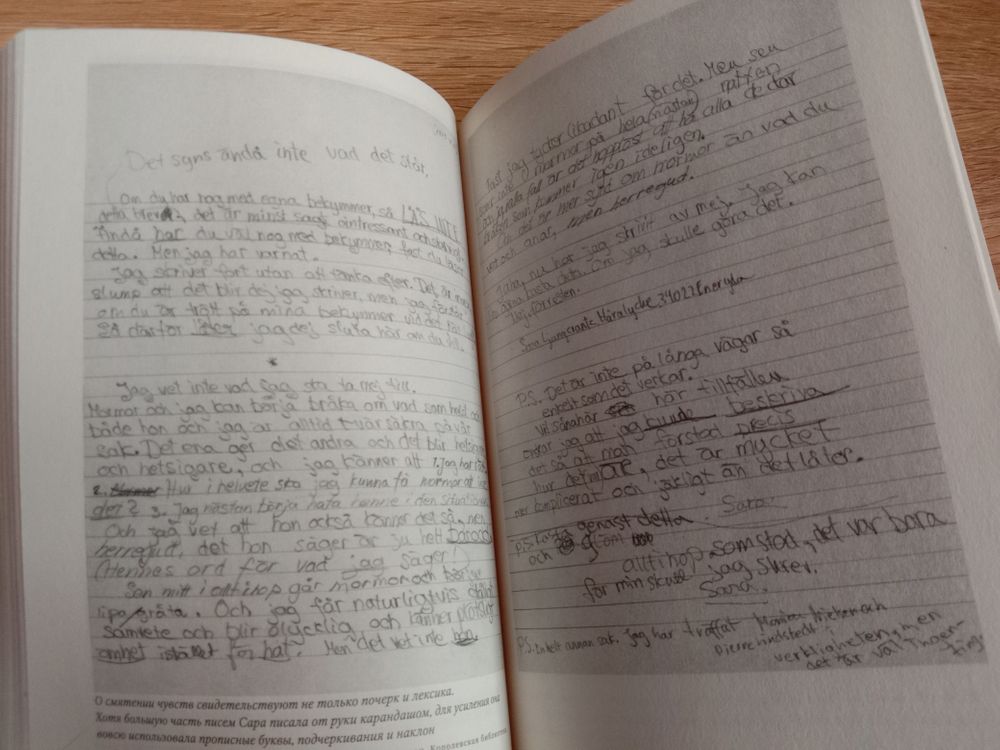 Det syns ändå inte vad det står.
Om du har nog med egna bekymmer, så LÄS INTE
detta brev, det är minst sagt ointressant och
Ändå har du väl nog med bekymmer, fast du läser
detta. Men jag har varnat.
Jag skriver fort utan att tänka efter. Det är
slump att det blir dej jag skriver, men jag förstår
om du är trött på mina bekymmer vid det här
så därför jag dej sluta här om du vill.
*
Jag vet inte vad jag ska ta mej till.
Mormor och jag kan börja bråka om vad som helst och
både hon och jag är alltid tvärsäkra på vår
sak. Det ena ger det andra och det blir hetsigare
och hetsigare, och jag känner att 1. Jag har
2. Hur i helvete ska jag kunna få mormor att
det? 3. Jag nästan börja hata henne i den situationen
Och jag vet att hon också känner det så, men
herregud, det hon säger är ju helt
(Hennes ord för vad jag säger!)
Sen mitt i alltihop går mormor och börjar
lipa/gråta. Och jag får naturligtvis dåligt
samvete och blir olycklig och känner plötsligt
ömhet istället för hat. Men det vet inte hon
О смятении чувств свидетельствуют не только почерк и лексика.
Хотя большую часть писем Сара писала от руки карандашом, для усиления она
вовсю использовала прописные буквы, подчеркивания и наклон
Королевская библиотека
fast jag tycker likadant för det. Men sen
inte mormor på hela (nästan) natten
fall är det hopplöst att ha alla de där
som kommer igen ideligen.
det är mer synd om mormor än vad du
vet och anar, men herregud.
Jaha, nu har jag skrivit av mej. Jag kan
detta. Om jag skulle göra det.
Hej förresten.
Sara Ljungcrantz Häralycke 34022 Eneryda
P.S. Det är inte på långa vägar så
enkelt som det verkar.
Vid sånahär här tillfällen
önskar jag att jag kunde beskriva
det så att man förstod precis
hur det är, det är mycket
mer complicerat och jäkligt än det låter.
Sara
P.S. genast detta
och som
alltihop som stod, det var bara
för min skull jag skrev.
Sara.
P.S. Enkelt annan sak. Jag har träffat och
Pierre Lindstedt i
verkligheten, men
det är väl ingen-
ting